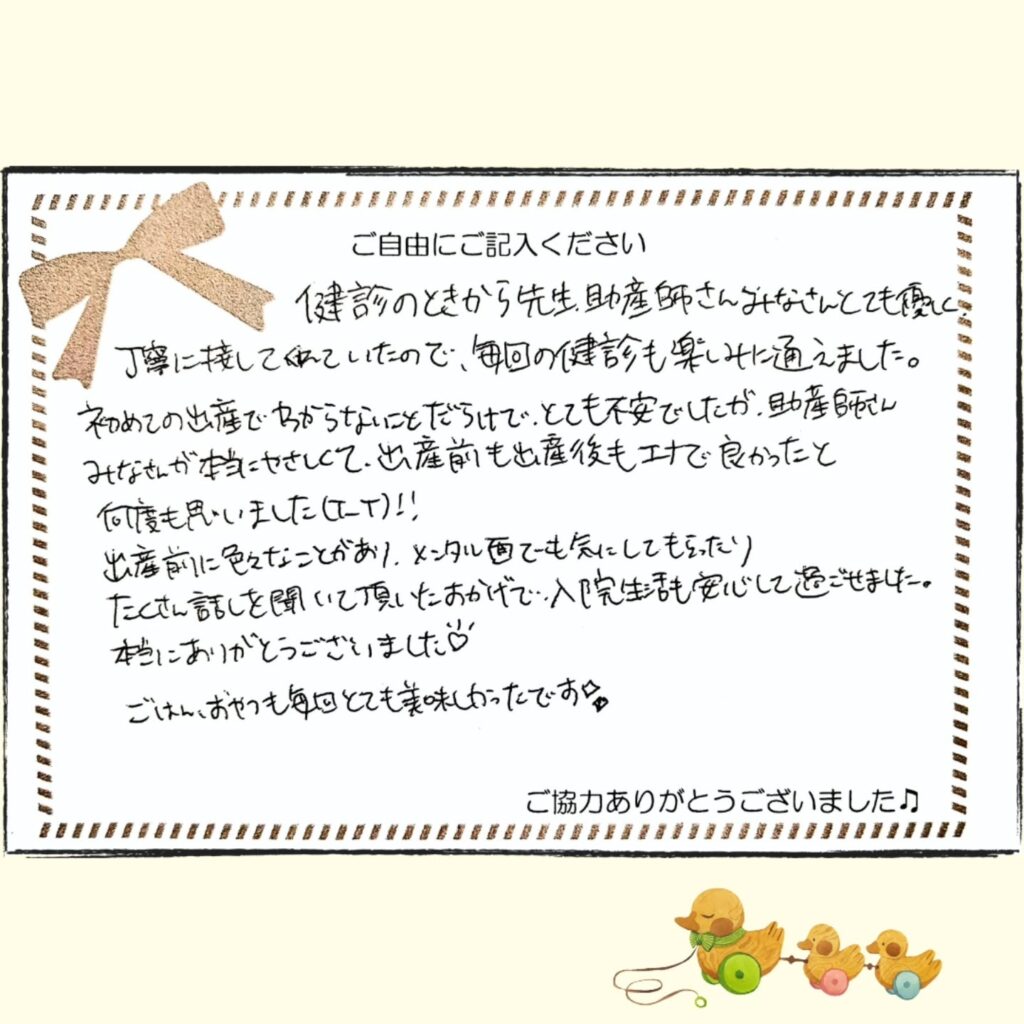 ご自由にご記入ください
健診のときから先生、助産師さんみなさんとても優しく、
丁寧に接してくれていたので、毎回の健診も楽しみに通えました。
初めての出産でわからないことだらけで、とても不安でしたが、助産師さん
みなさんが本当にやさしくて、出産前も出産後もエナで良かったと
何度も思いました(T_T)!!
出産前に色々なことがあり、メンタル面でも気にしてもらったり
たくさん話しを聞いて頂いたおかげで、入院生活も安心して過ごせました。
本当にありがとうございました♡
ごはん、おやつも毎回とても美味しかったです
ご協力ありがとうございました♫